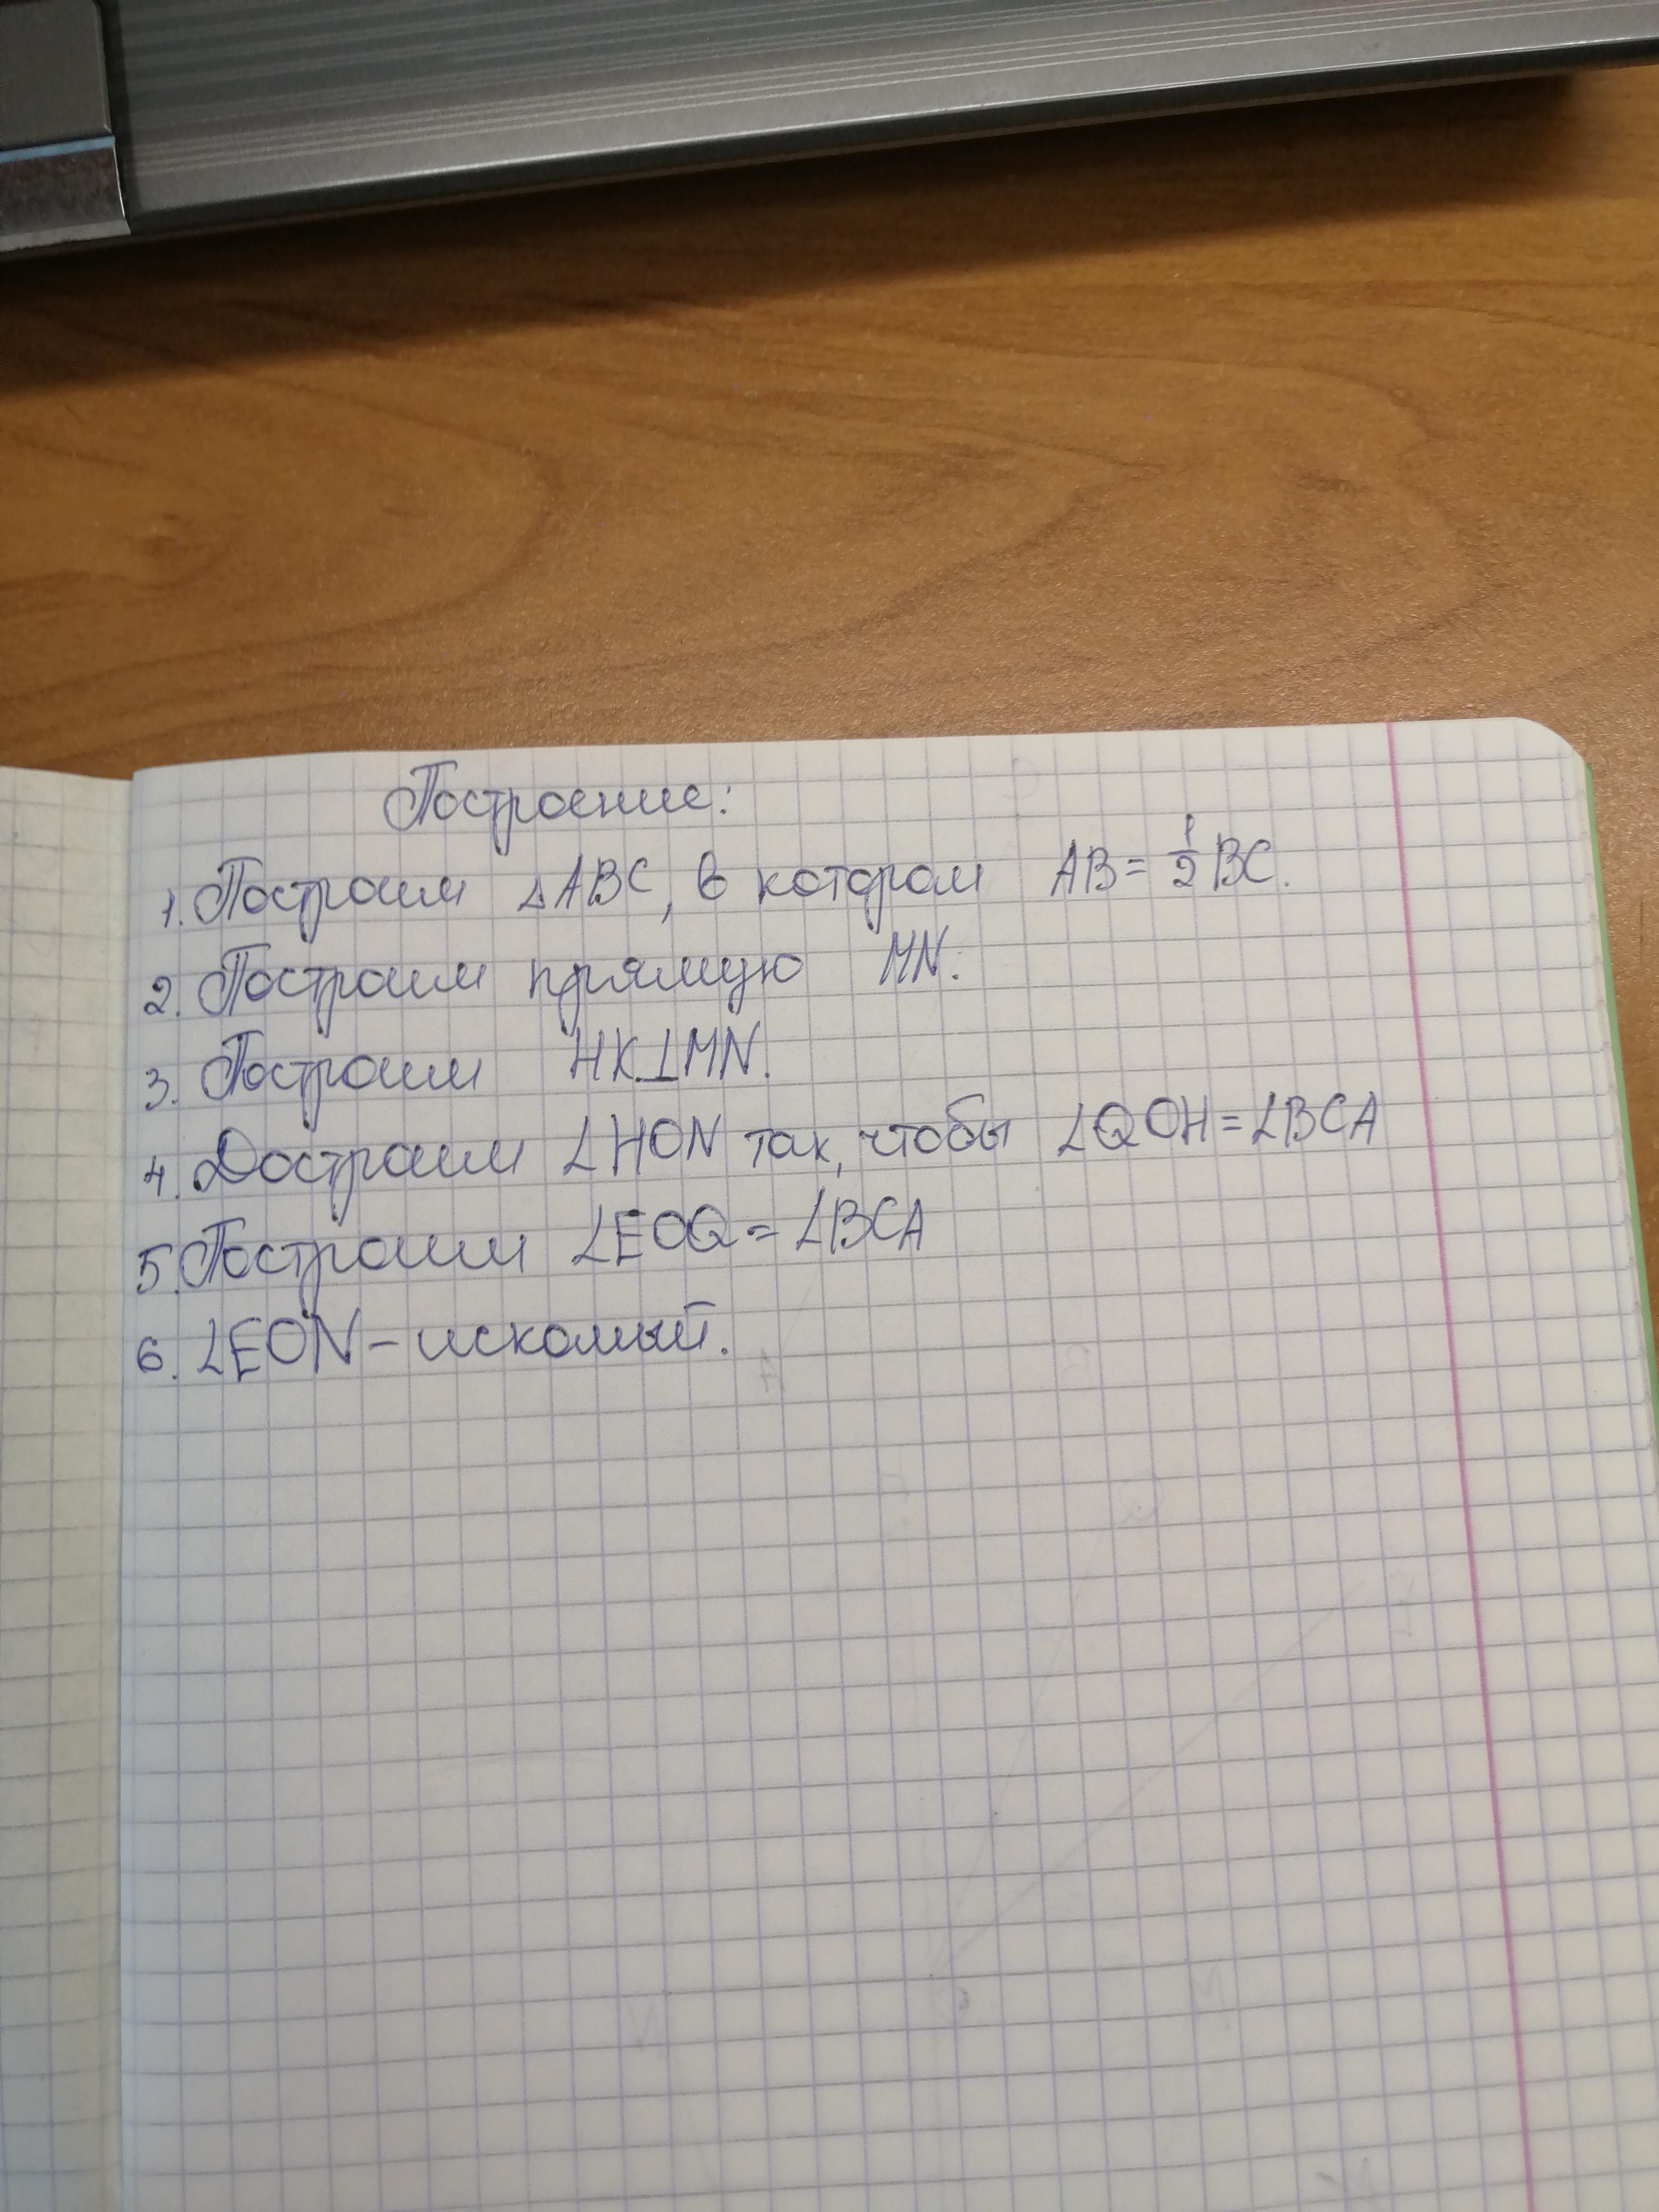 Построение:
1. Построим △ABC, в котором AB = 1/2 BC.
2. Построим прямую MN.
3. Построим HK⊥MN.
4. Достроим ∠HON так, чтобы ∠QOH = ∠BCA
5. Построим ∠EOQ = ∠BCA
6. ∠EON – искомый.